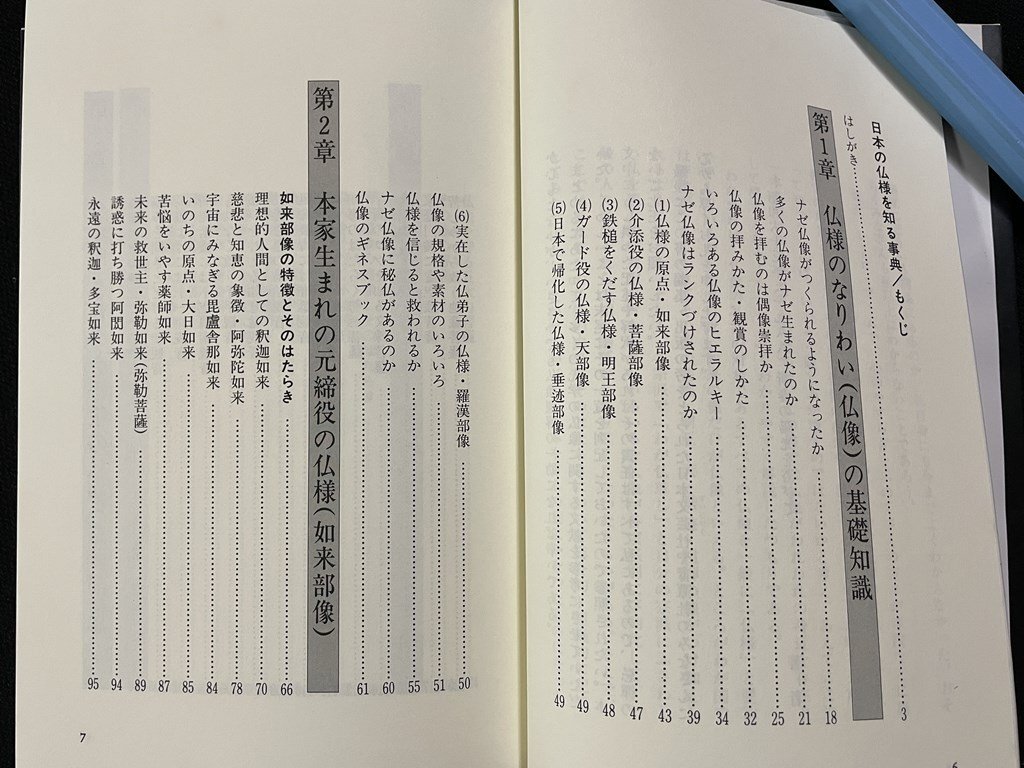 日本の仏様を知る事典／もくじ
はしがき……3
第1章　仏様のなりわい(仏像)の基礎知識
ナゼ仏像がつくられるようになったか……18
多くの仏像がナゼ生まれたのか……21
仏像を拝むのは偶像崇拝か……25
仏像の拝みかた・観賞のしかた……32
いろいろある仏像のヒエラルキー……34
ナゼ仏像はランクづけされたのか……39
(1)仏様の原点・如来部像……43
(2)介添役の仏様・菩薩部像……47
(3)鉄槌をくだす仏様・明王部像……48
(4)ガード役の仏様・天部像……49
(5)日本で帰化した仏様・垂迹部像……49
6
(6)実在した仏弟子の仏様・羅漢部像……50
仏像の規格や素材のいろいろ……51
仏様を信じると救われるか……55
ナゼ仏像に秘仏があるのか……60
仏像のギネスブック……61
第2章　本家生まれの元締役の仏様(如来部像)
如来部像の特徴とそのはたらき……66
理想的人間としての釈迦如来……70
慈悲と知恵の象徴・阿弥陀如来……78
宇宙にみなぎる毘盧舎那如来……84
いのちの原点・大日如来……85
苦悩をいやす薬師如来……87
未来の救世主・弥勒如来(弥勒菩薩)……89
誘惑に打ち勝つ阿閦如来……94
永遠の釈迦・多宝如来……95
7